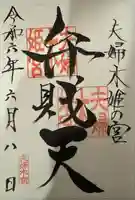 夫婦木姫の宮
弁財天
令和六年六月八日